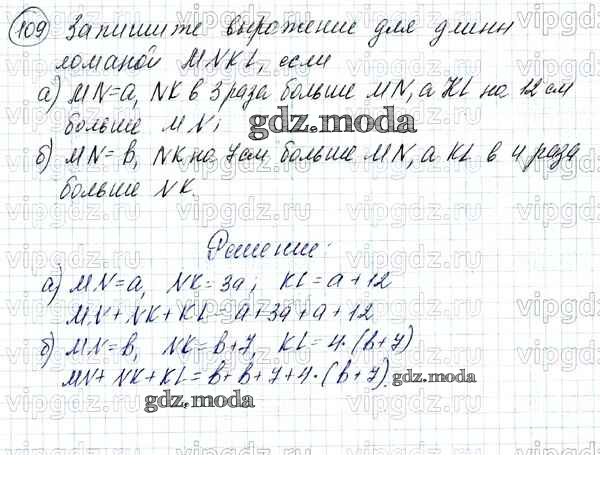 109 Запишите выражение для длины
ломаной MNKL, если
а) MN=a, NK в 3 раза больше MN, а KL на 12 см
больше MN;
gdz.moda
б) MN=b, NK на 7 см больше MN, а KL в 4 раза
больше NK.
Решение:
а) MN=a, NK=3a; KL=a+12
MN+NK+KL=a+3a+a+12
б) MN=b, NK=b+7, KL=4·(b+7)
MN+NK+KL=b+b+7+4·(b+7)
gdz.moda
gdz.moda
vipgdz.ru